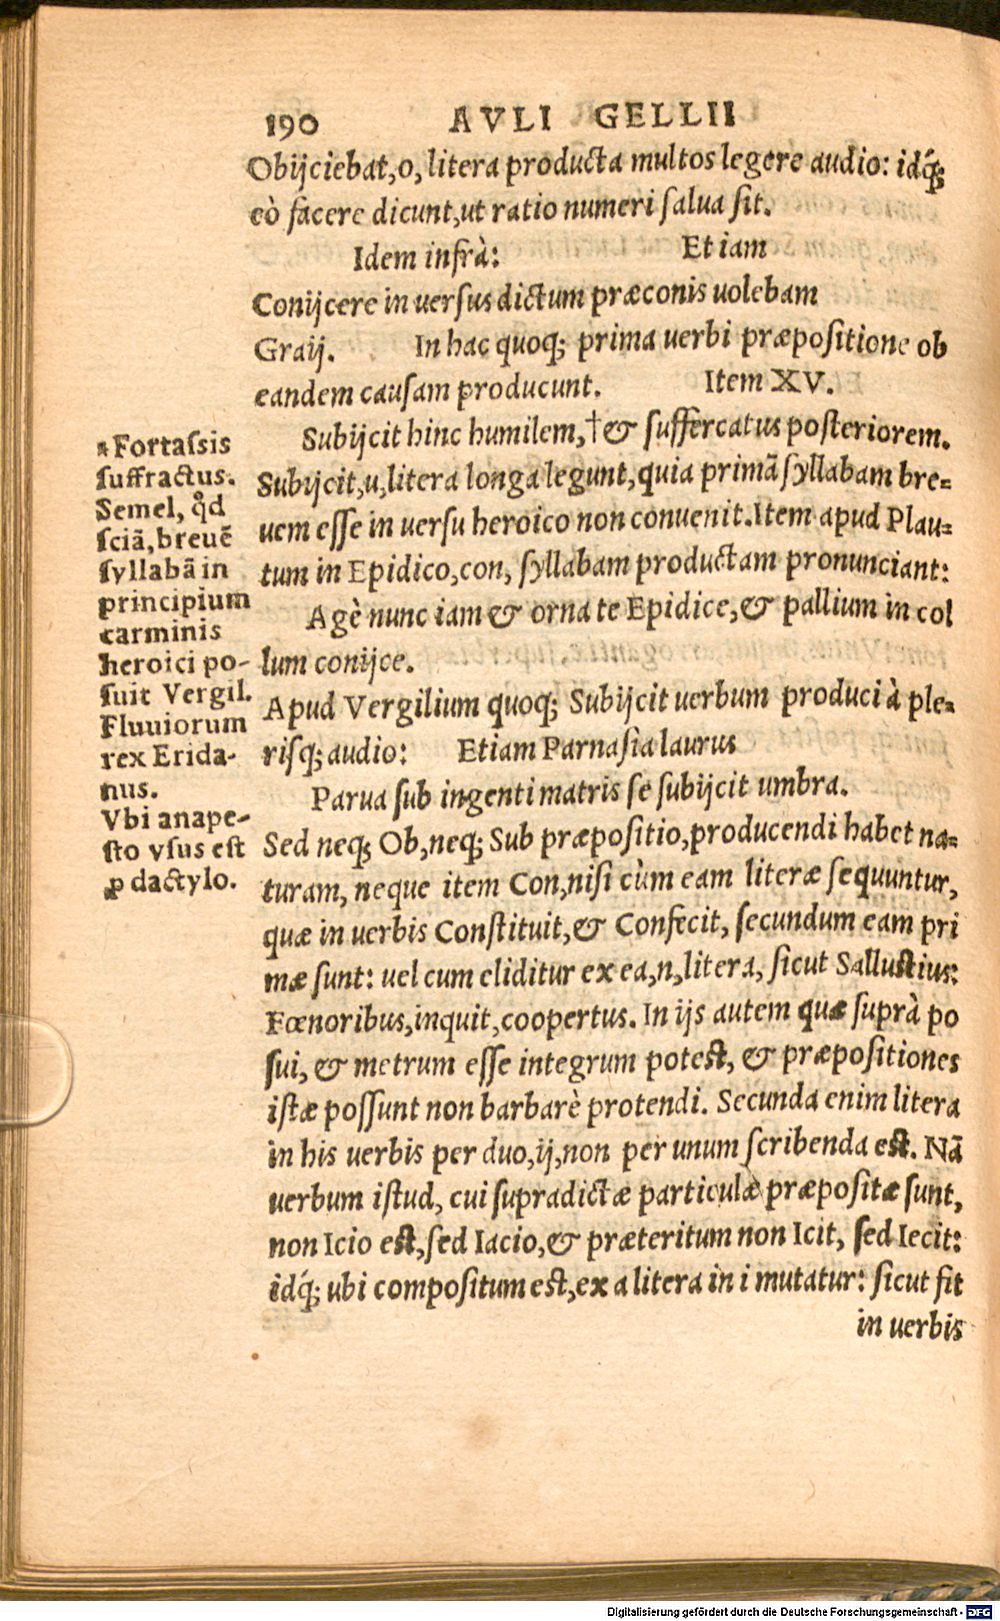 190 AVLI GELLII
Obijciebat,o, litera producta multos legere audio: idq́;
eò facere dicunt,ut ratio numeri salua sit.
Idem infrà: Et iam
Conijcere in uersus dictum præconis uolebam
Graij. In hac quoq; prima uerbi præpositione ob
eandem causam producunt. Item XV.
Subijcit hinc humilem,†& suffercatus posteriorem.
Subijcit,u,litera longa legunt,quia primã syllabam bre-
uem esse in uersu heroico non conuenit.Item apud Plau-
tum in Epidico,con, syllabam productam pronunciant:
Agè nunc iam & orna te Epidice,& pallium in col
lum conijce.
Apud Vergilium quoq; Subijcit uerbum produci à ple-
risq; audio: Etiam Parnasia laurus
Parua sub ingenti matris se subijcit umbra.
Sed neq; Ob,neq; Sub præpositio,producendi habet na-
turam, neque item Con,nisi cùm eam literæ sequuntur,
quæ in uerbis Constituit,& Confecit, secundum eam pri
mæ sunt: uel cum eliditur ex ea,n,litera, sicut Sallustius:
Fœnoribus,inquit,coopertus. In ijs autem quæ suprà po
sui, & metrum esse integrum potest, & præpositiones
istæ possunt non barbarè protendi. Secunda enim litera
in his uerbis per duo,ij,non per unum scribenda est. Nã
uerbum istud, cui supradictæ particulæ præpositæ sunt,
non Icio est,sed Iacio,& præteritum non Icit, sed Iecit:
idq́; ubi compositum est,ex a litera in i mutatur: sicut fit
in uerbis
*Fortassis
suffractus.
Semel, qͦd
sciã,breuẽ
syllabã in
principium
carminis
heroici po-
suit Vergil.
Fluuiorum
rex Erida-
nus.
Vbi anape-
sto vsus est
ꝓ dactylo.
Digitalisierung gefördert durch die Deutsche Forschungsgemeinschaft - DFG